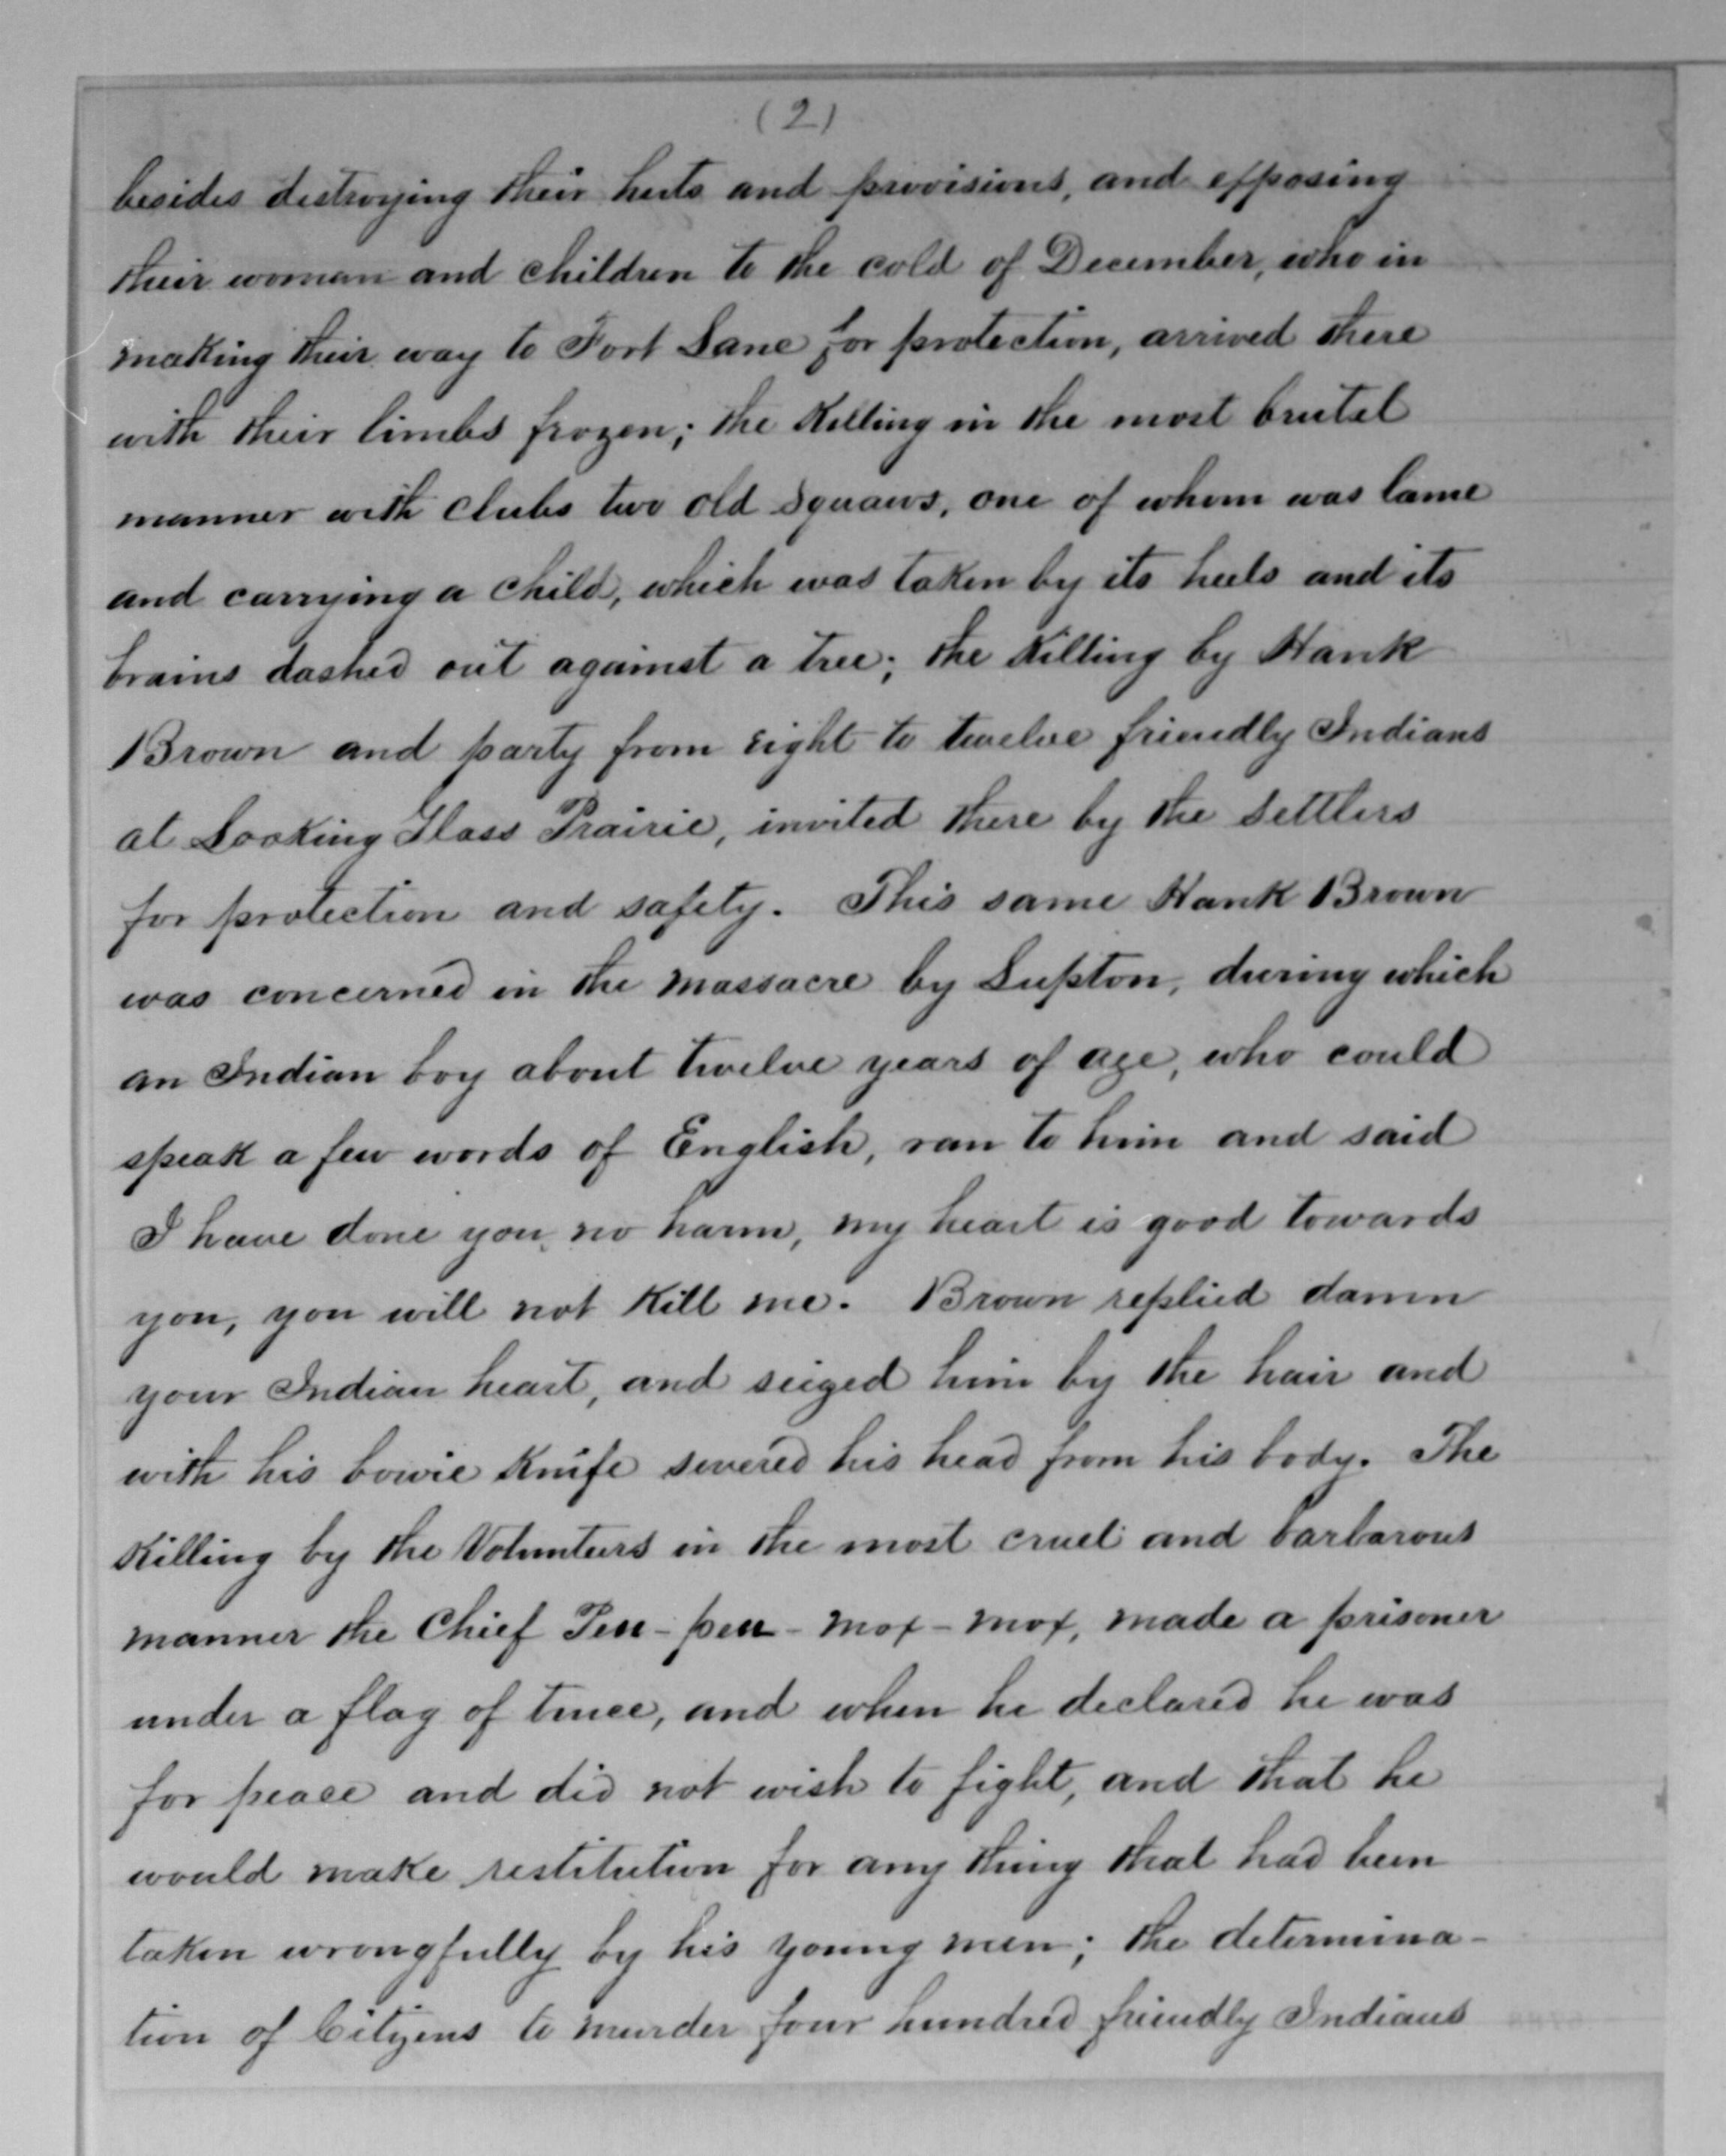 (2)
besides destroying their huts and provisions, and exposing
their woman and children to the cold of December, who in
making their way to Fort Lane for protection, arrived there
with their limbs frozen; the Killing in the most brutal
manner with clubs two old squaws, one of whom was lame
and carrying a child, which was taken by its heels and its
brains dashed out against a tree; the Killing by Hank
Brown and party from eight to twelve friendly Indians
at Looking Glass Prairie, invited there by the settlers
for protection and safety. This same Hank Brown
was concerned in the massacre by Lupton, during which
an Indian boy about twelve years of age, who could
speak a few words of English, ran to him and said
I have done you no harm, my heart is good towards
you, you will not Kill me. Brown replied damn
your Indian heart, and seized him by the hair and
with his bowie Knife severed his head from his body. The
Killing by the Volunteers in the most cruel and barbarous
manner the Chief Peu-peu-mox-mox, made a prisoner
under a flag of truce, and when he declared he was
for peace and did not wish to fight, and that he
would make restitution for any thing that had been
taken wrongfully by his young men; the determina-
tion of Citizens to murder four hundred friendly Indians